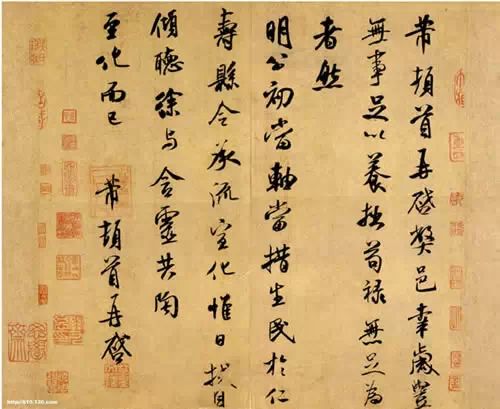 芾頓首再啓弊邑幸歲豐
無事足以養拙苟祿無足為
者然
明公初當軸當措生民於仁
壽縣令承流宣化惟日拭目
傾聽徐与含靈共陶
至化而已
芾頓首再啓